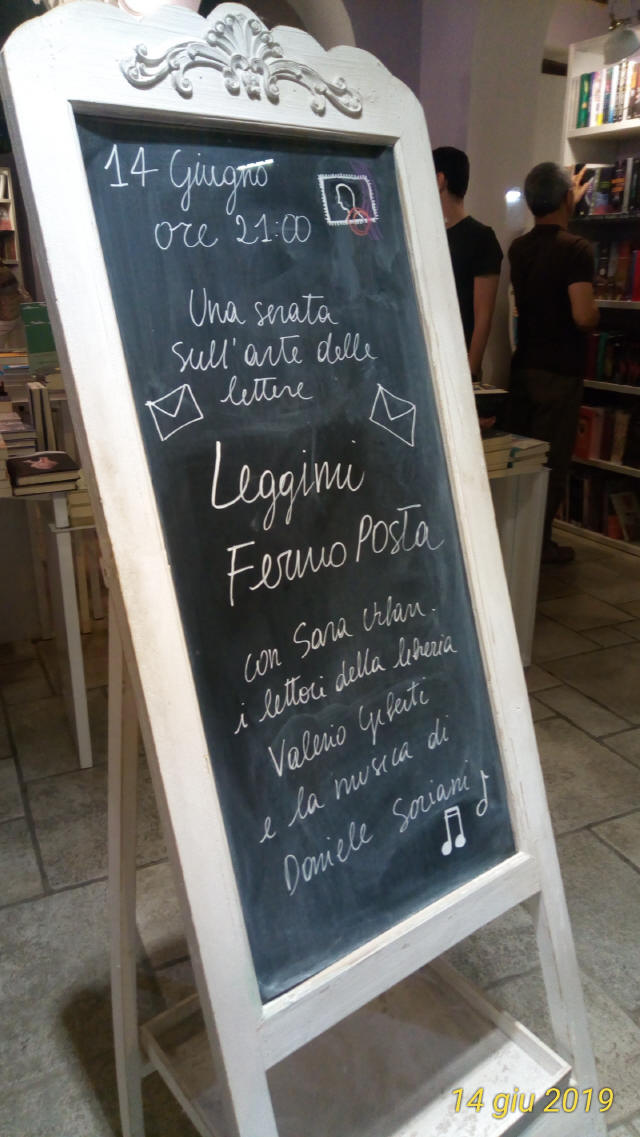 14 Giugno
ore 21:00
Una serata
sull'arte delle
lettere
Leggimi
Fermo Posta
con Sara Urban.
i lettori della libreria
Valerio Gilberti
e la musica di
Daniele Soriani
14 giu 2019